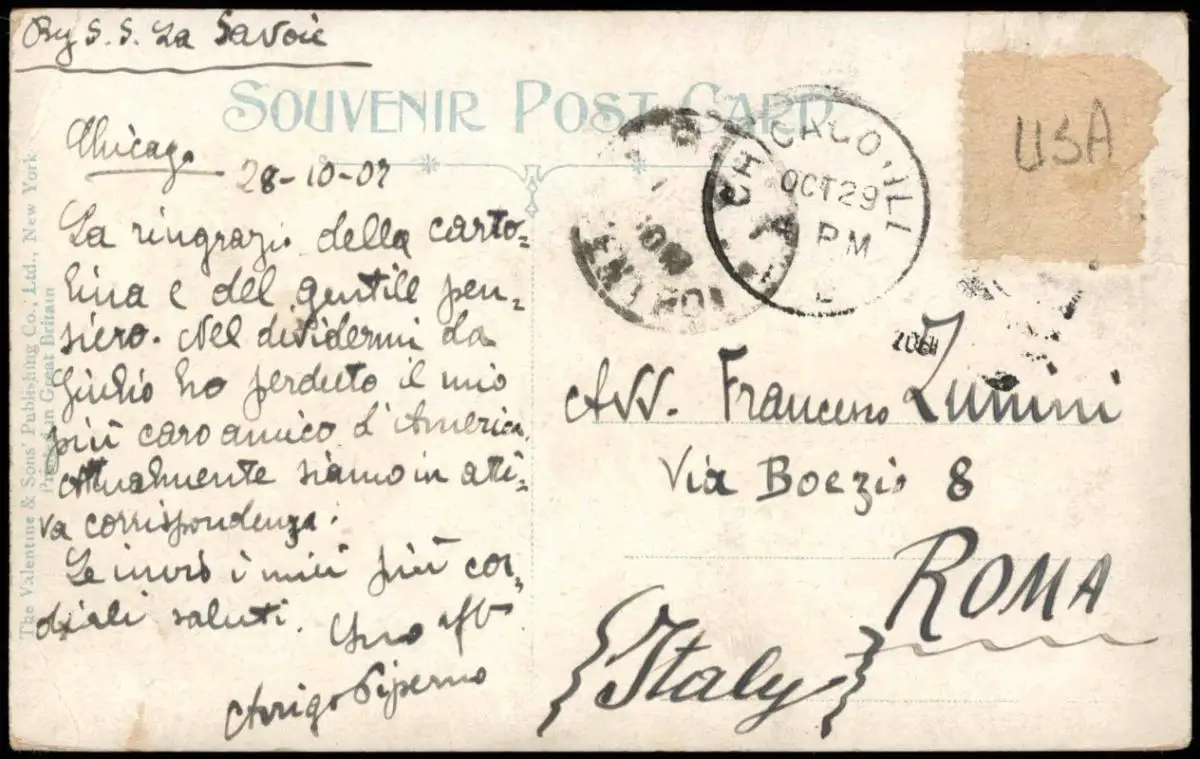 By S. S. La Savoie
SOUVENIR POST CARD
USA
CHICAGO, ILL
OCT 29
PM
Chicago
28-10-07
La ringrazio della carto=
lina e del gentile pen=
siero. Nel dividermi da
Giulio ho perduto il mio
più caro amico d'America.
Attualmente siamo in atti=
va corrispondenza.
Le invio i miei più cor=
diali saluti. Suo aff
Arrigo Piperno
Avv. Francesco Zunini
Via Boezio 8
ROMA
Italy
The Valentine & Sons' Publishing Co., Ltd., New York
Printed in Great Britain